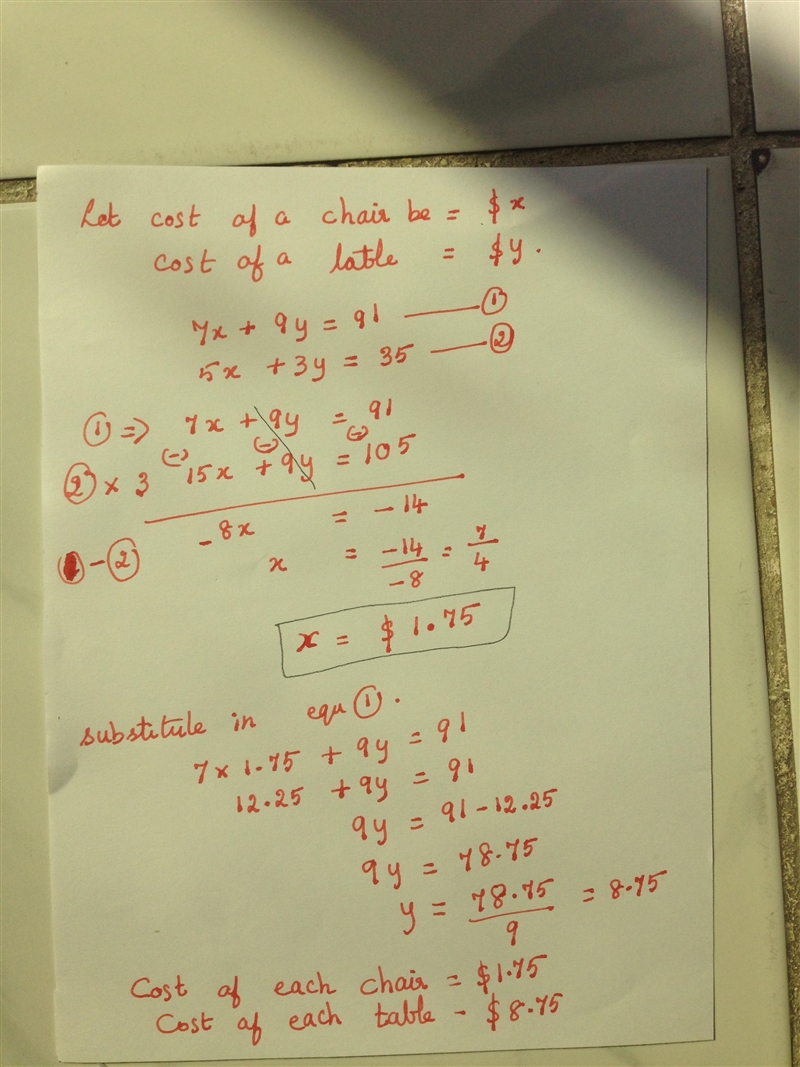 Let cost of a chair be = $x
cost of a table = $y.
7x + 9y = 91 —— ①
5x + 3y = 35 —— ②
① => 7x + 9y = 91
② × 3 (-) 15x (-) + 9y (-) = 105
-8x = -14
① - ② x = -14/-8 = 7/4
x = $1.75
substitute in equ ①.
7 × 1.75 + 9y = 91
12.25 + 9y = 91
9y = 91 - 12.25
9y = 78.75
y = 78.75/9 = 8.75
Cost of each chair = $1.75
Cost of each table - $8.75